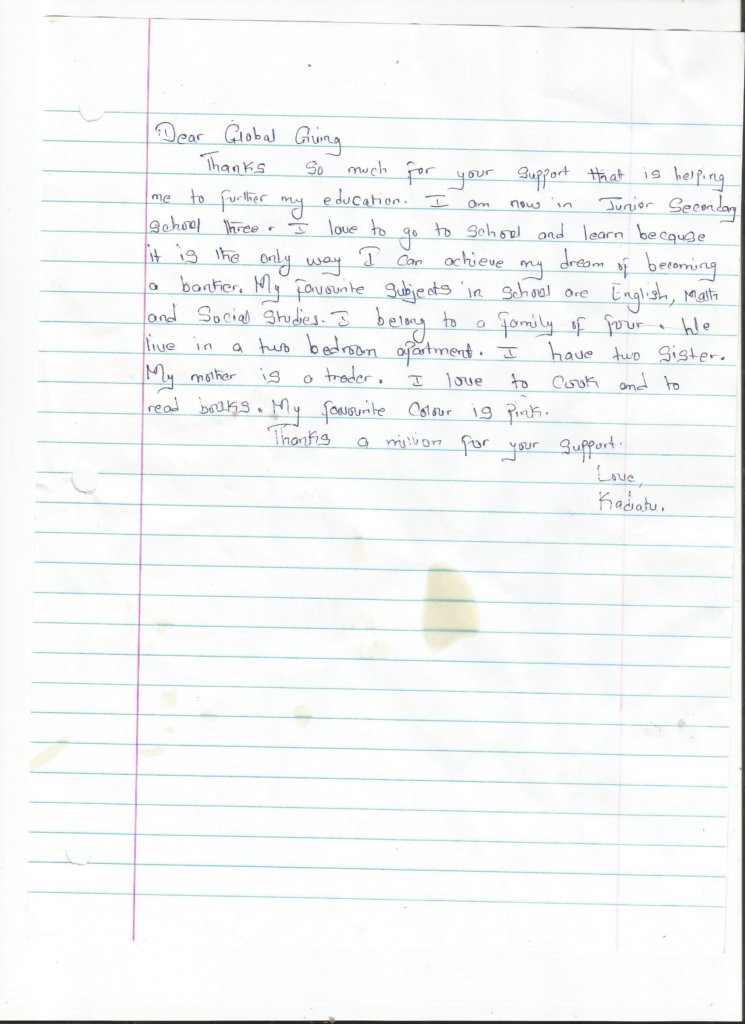 Dear Global Giving
Thanks so much for your support that is helping
me to further my education. I am now in Junior Secondary
School three. I love to go to school and learn because
it is the only way I can achieve my dream of becoming
a banker. My favourite subjects in school are English, Math
and Social Studies. I belong to a family of four. We
live in a two bedroom apartment. I have two sister.
My mother is a trader. I love to cook and to
read books. My favourite colour is pink.
Thanks a million for your support.
Love,
Kadiatu.